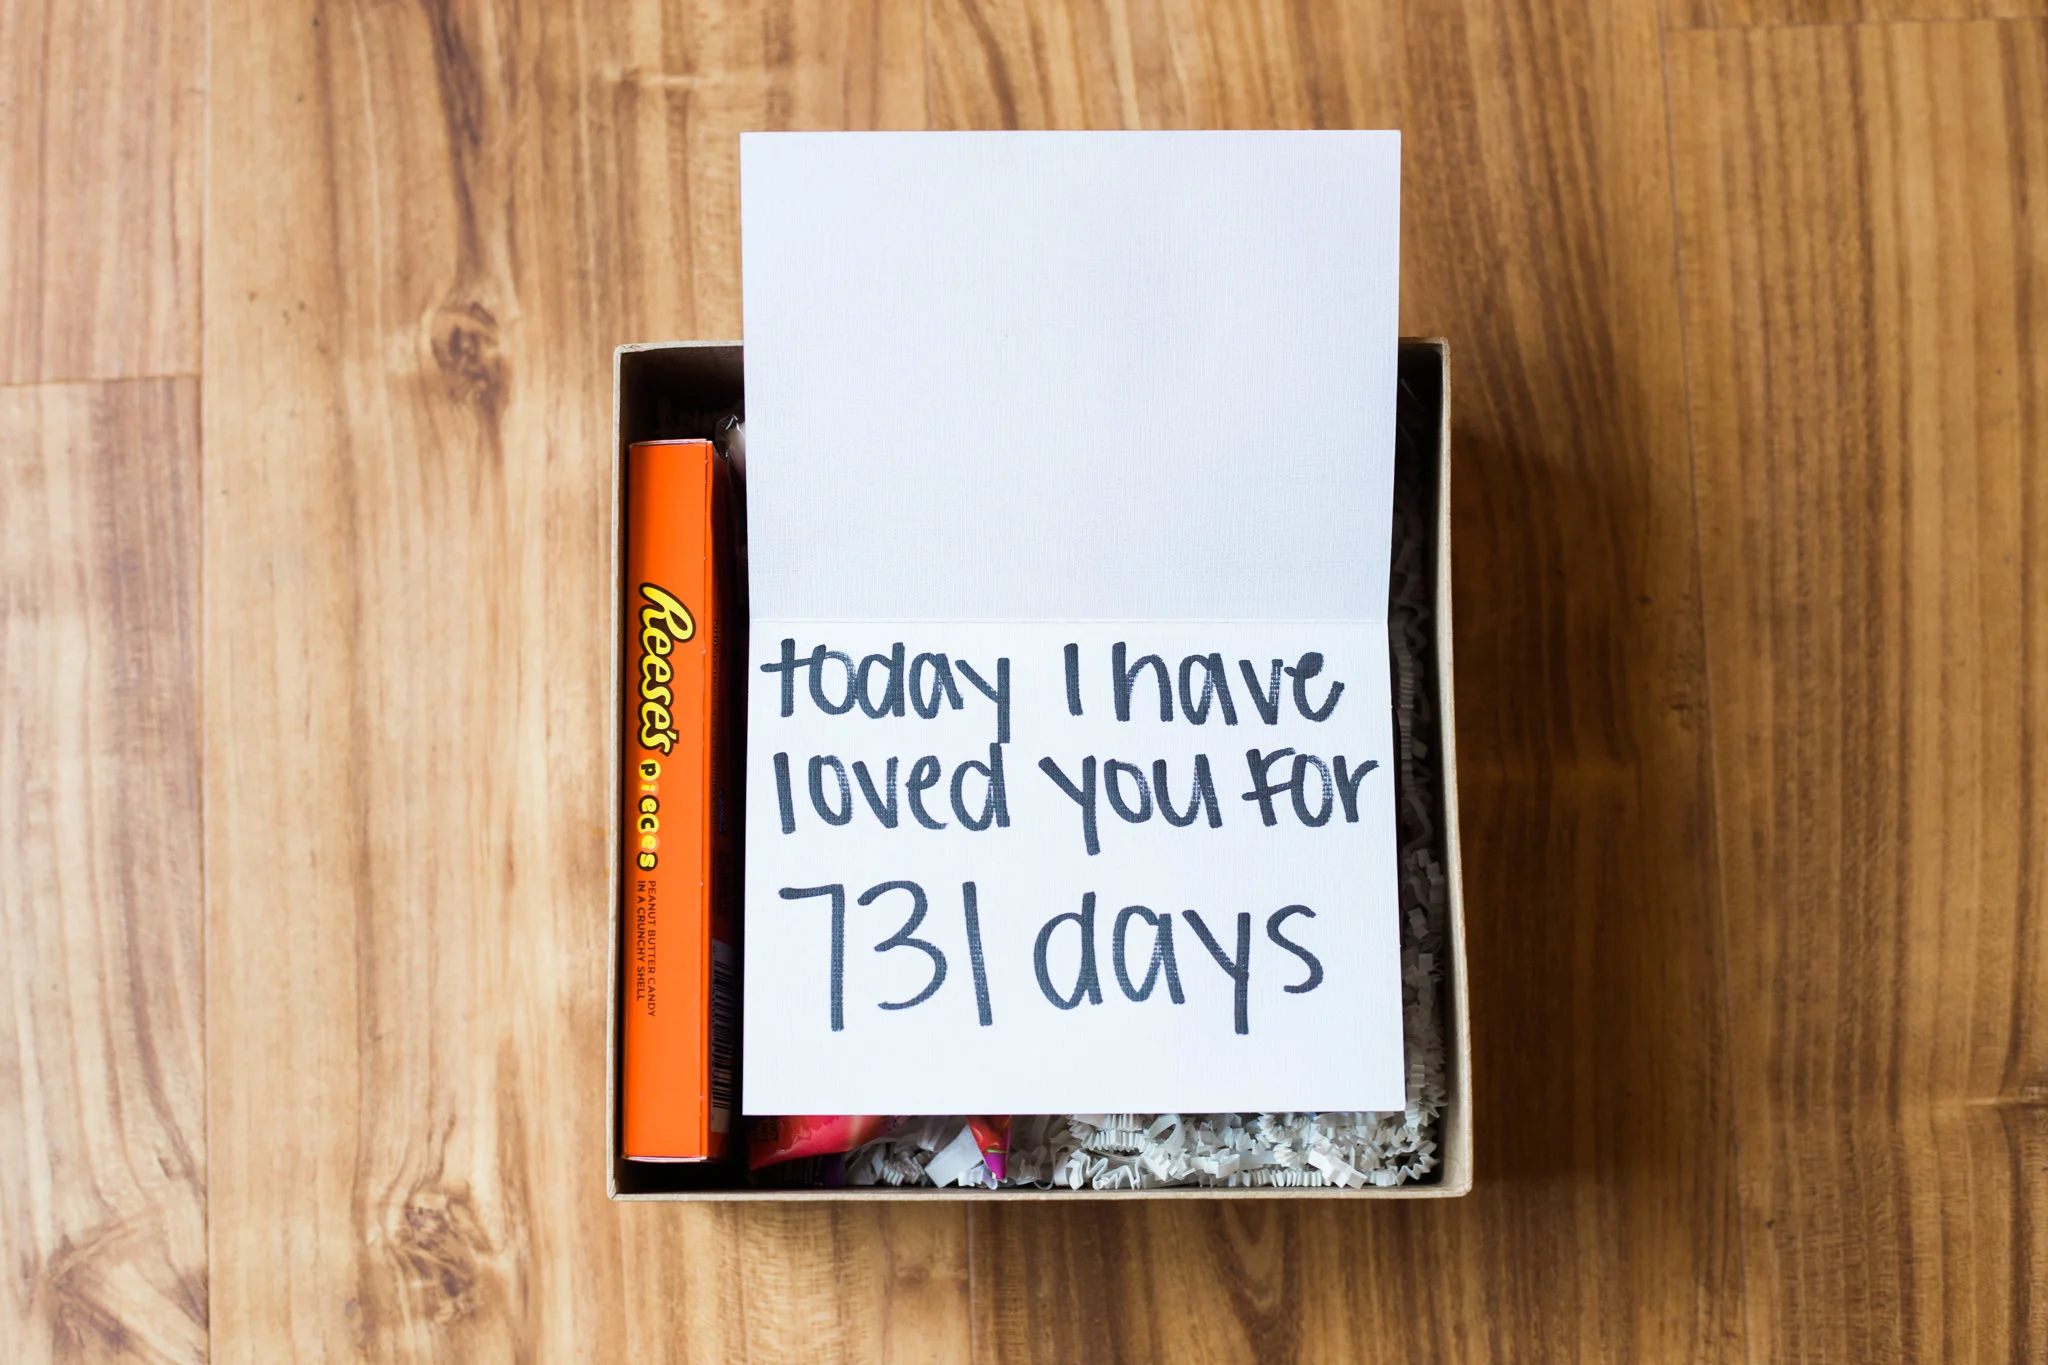 today I have
loved you for
731 days
Reese's
pieces
PEANUT BUTTER CANDY
IN A CRUNCHY SHELL